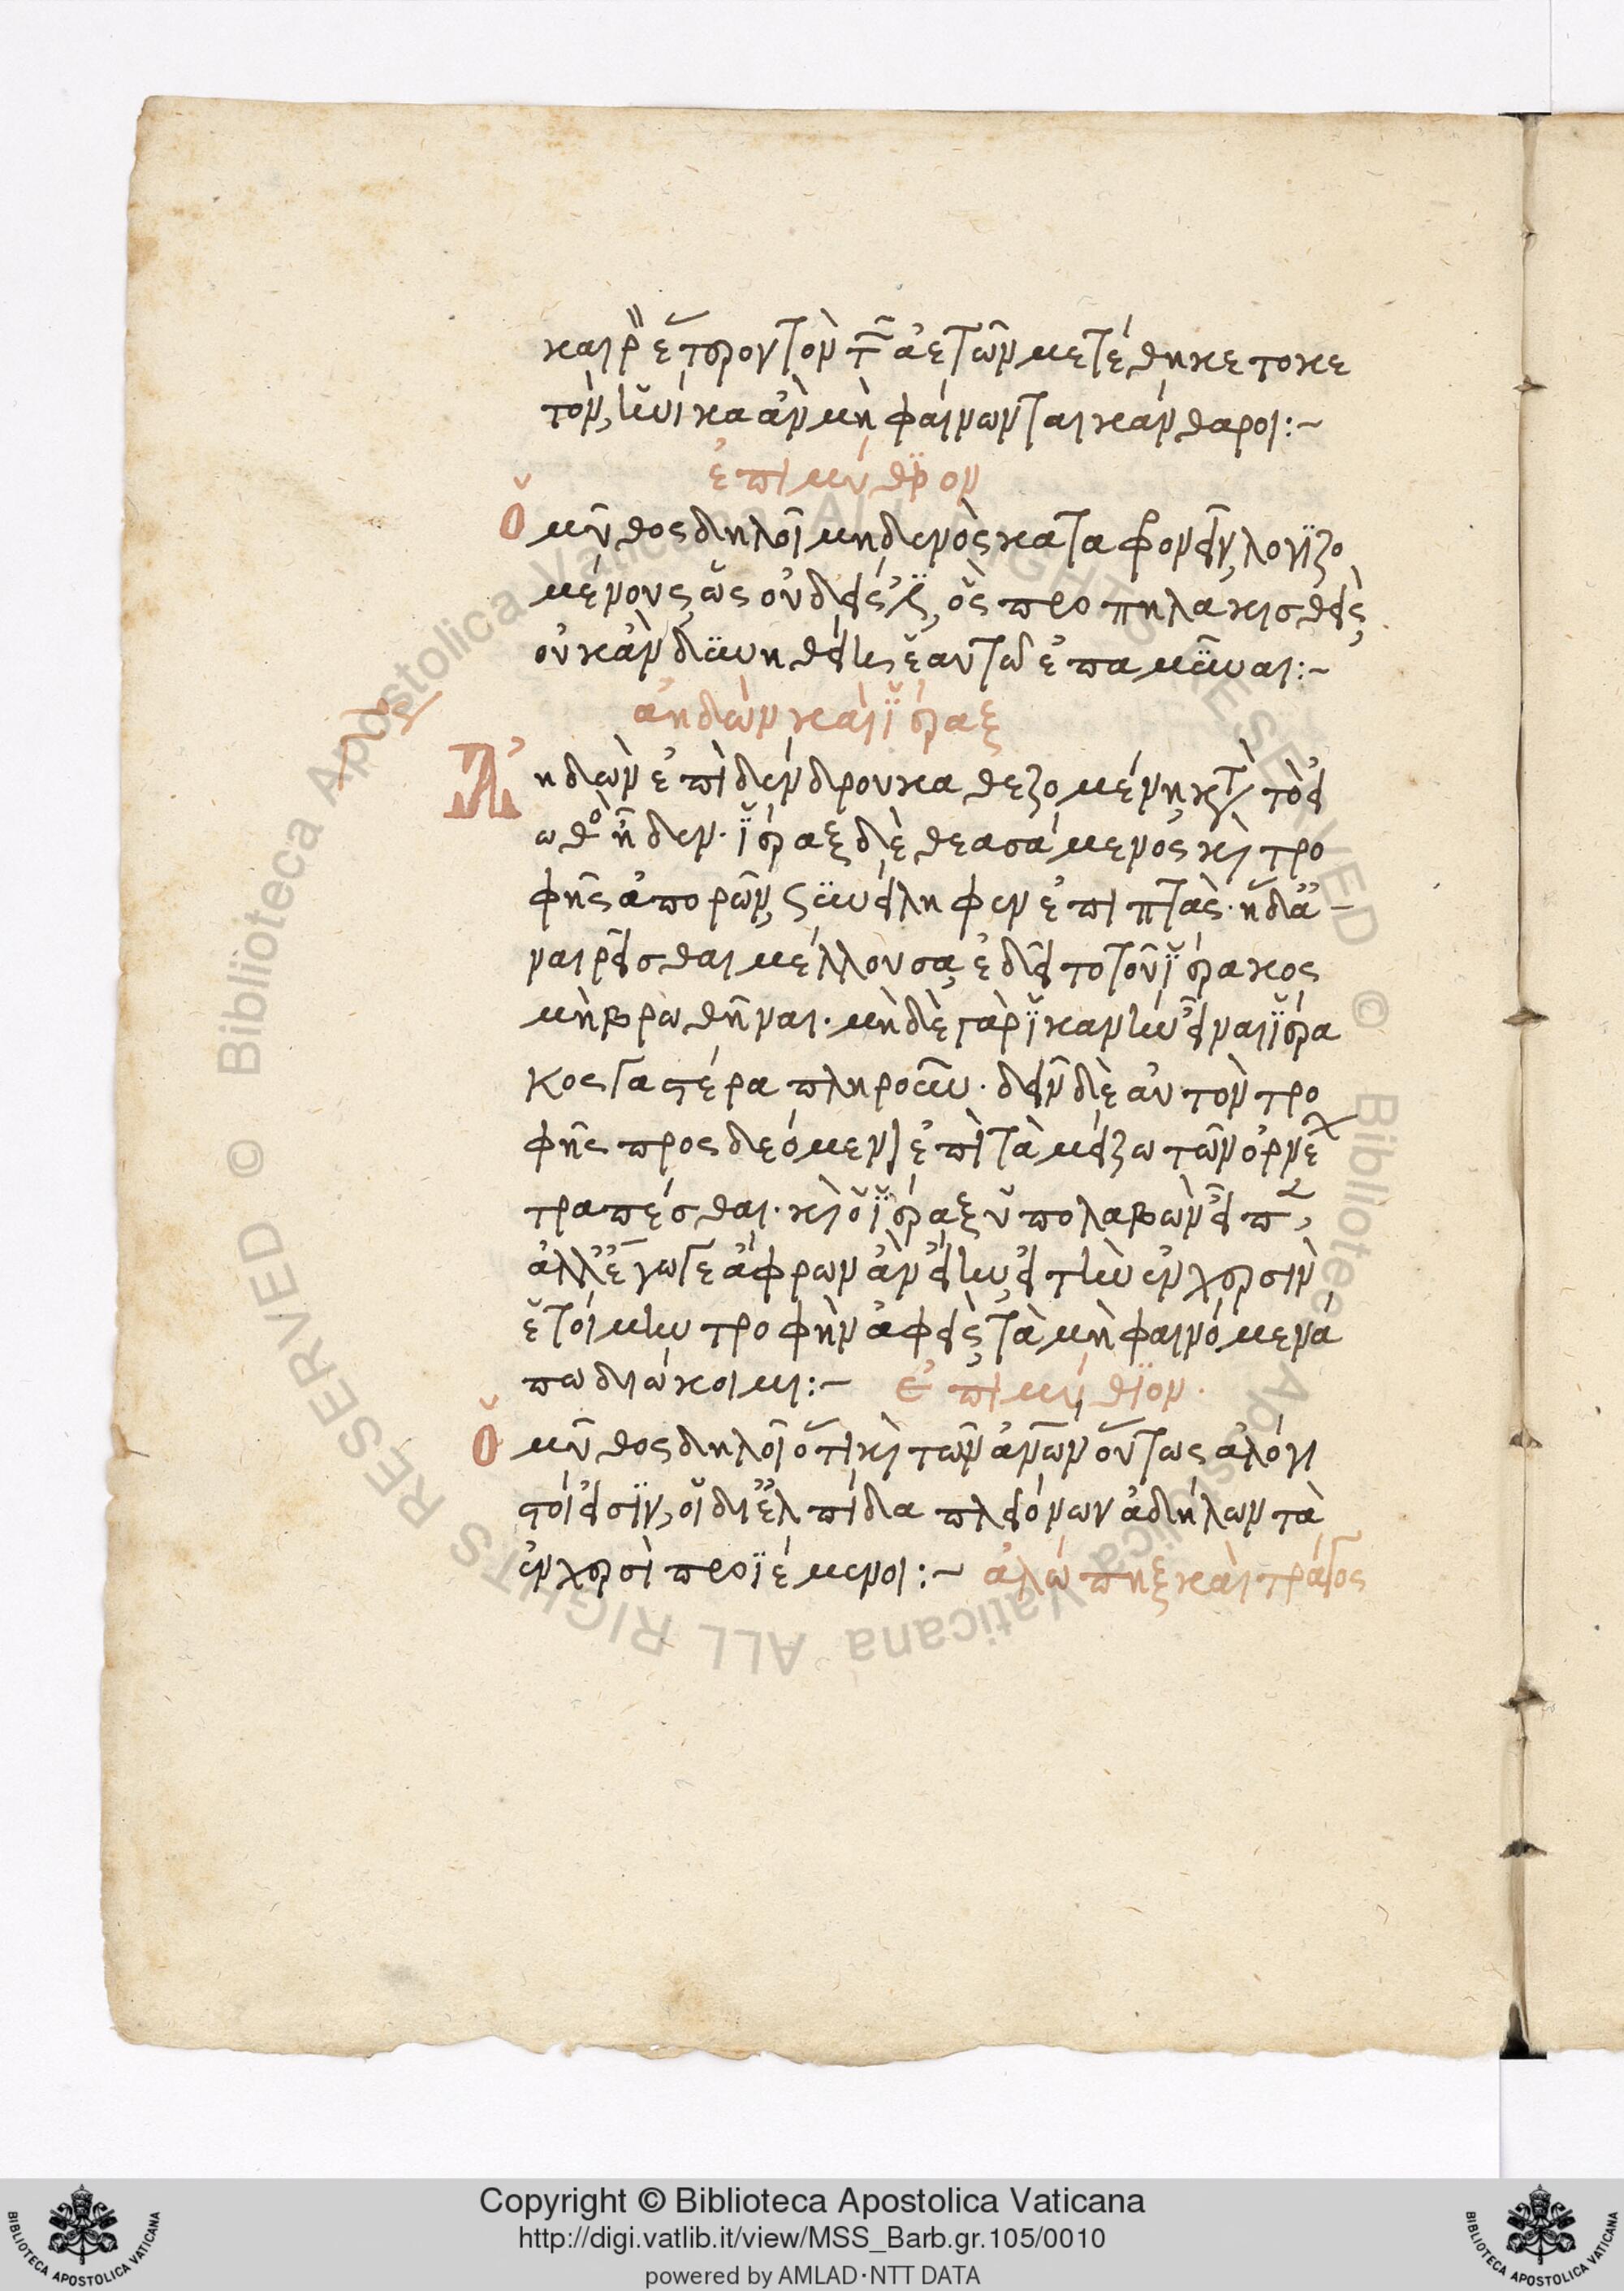 καιρὸν ἕτερον τὸν τῶν ἀετῶν μετέθηκε τοκε
τὸν, ἡνίκα ἂν μὴ φαίνωνται κάνθαροι:~
ἐπιμύθιον
Ὁ μῦθος δηλοῖ μηδενὸς καταφρονεῖν, λογιζο
μένους, ὡς οὐδείς ἐστιν, ὃς προπηλακισθεὶς,
οὐκ ἂν δυνηθείη ἑαυτῶ ἐπαμῦναι:~
ἀηδὼν καὶ ἱέραξ
Ἀηδὼν ἐπὶ δένδρου καθεζομένη κατὰ τὸ εἰ
ωθὸς ἦδεν. ἱέραξ δὲ θεασάμενος καὶ τρο
φῆς ἀπορῶν, συνείληφεν ἐπιπτὰς. ἡ δὲ ἀ
ναιρεῖσθαι μέλλουσα, ἐδεῖτο τοῦ ἱέρακος
μὴ βρωθῆναι. μὴ δὲ γὰρ ἱκανὴν εἶναι ἱέρα
κος γαστέρα πληροῦν. δεῖν δὲ αὐτὸν τρο
φῆς προσδεόμενον ἐπὶ τὰ μείζω τῶν ὀρνέων
τραπέσθαι. καὶ ὁ ἱέραξ ὑπολαβὼν εἶπεν,
ἀλλ' ἔγωγε ἄφρων ἂν εἴην, εἰ τὴν ἐν χερσὶν
ἑτοίμην τροφὴν ἀφεὶς, τὰ μὴ φαινόμενά
πω διώκοιμι:~ ἐπιμύθιον.
Ὁ μῦθος δηλοῖ ὅτι καὶ τῶν ἀνων οὕτως ἀλόγι
στοί εἰσιν, οἳ δι' ἐλπίδα πλειόνων ἀδήλων τὰ
ἐν χερσὶ προϊέμενοι:~ ἀλώπηξ καὶ τράγος
Copyright © Biblioteca Apostolica Vaticana
http://digi.vatlib.it/view/MSS_Barb.gr.105/0010
powered by AMLAD·NTT DATA